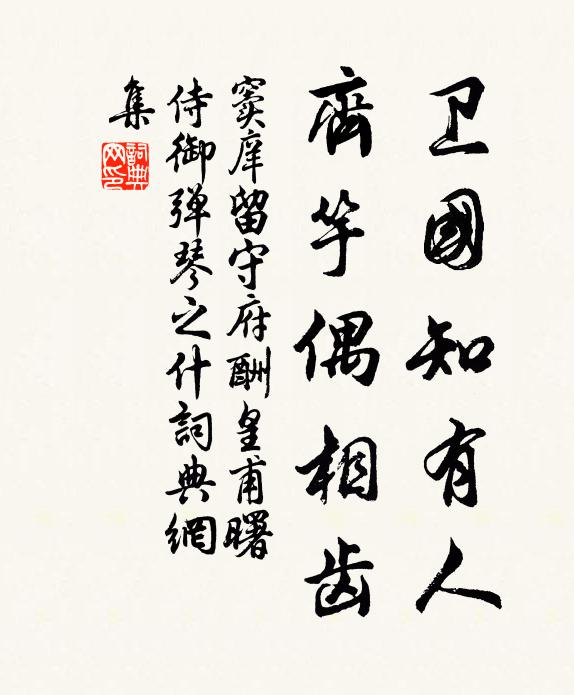 卫國知有人
齊竽偶相齿
窦庠留守府酬皇甫曙
侍御弹琴之什詞典網
集
詞典
网印